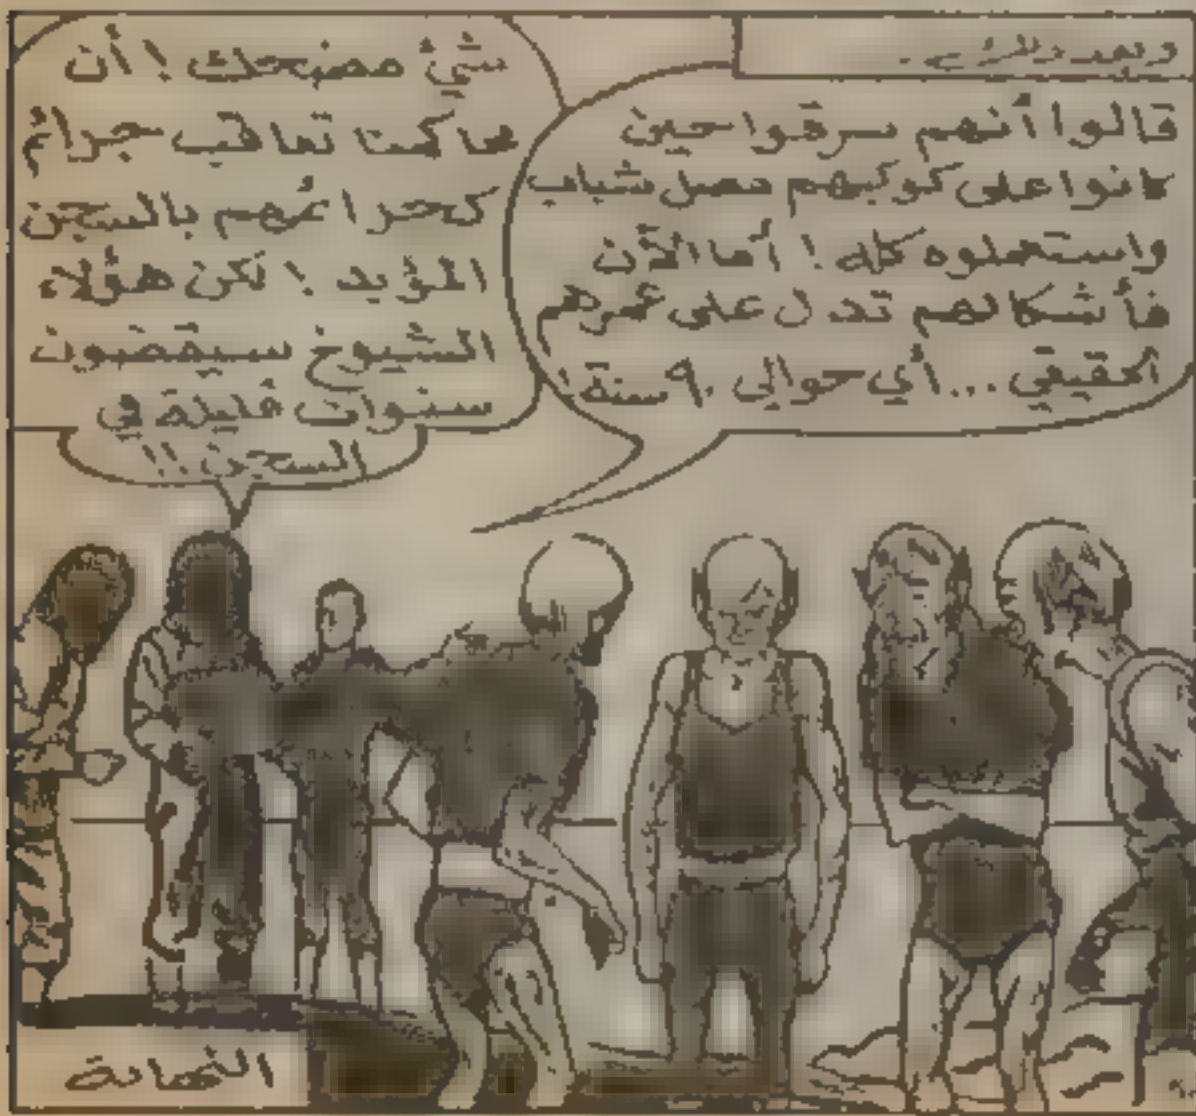 وبعد ذلك..
قالوا أنهم سرقوا حين
كانوا على كوكبهم مصل شباب
واستعملوه كله ! أما الآن
فأشكالهم تدل على عمرهم
الحقيقي ... أي حوالي ٩٠ سنة !
شئ مضحك ! أن
محاكمنا تعاقب جرائم
كجرائمهم بالسجن
المؤبد ! لكن هؤلاء
الشيوخ سيقضون
سنوات قليلة في
السجن !!
النهاية